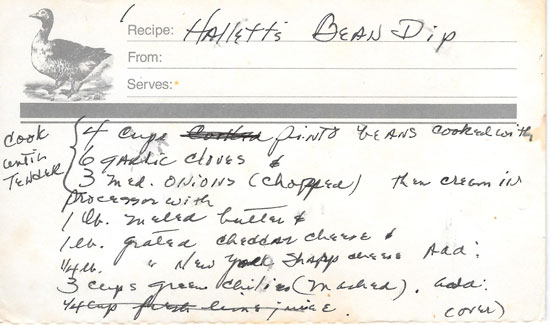 Recipe: Hallett's Bean Dip
From:
Serves:
Cook until tender
4 cups cooked pinto beans cooked with
6 garlic cloves &
3 med. onions (chopped) then cream in
processor with
1 lb. melted butter &
1 lb. grated cheddar cheese &
1/4 lb. " New York sharp cheese Add:
3 cups green chilies (mashed). add:
1/4 cup fresh lime juice. (over)